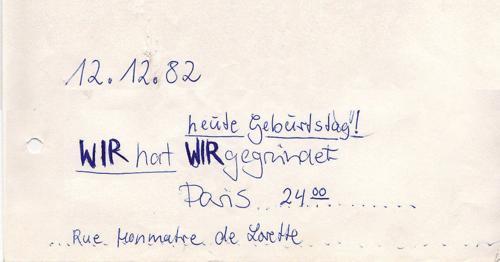 12.12.82
heute Geburtstag"!
WIR hat WIR gegründet
Paris .. 24.00 ..........
... Rue Monmatre de Lorette ...........